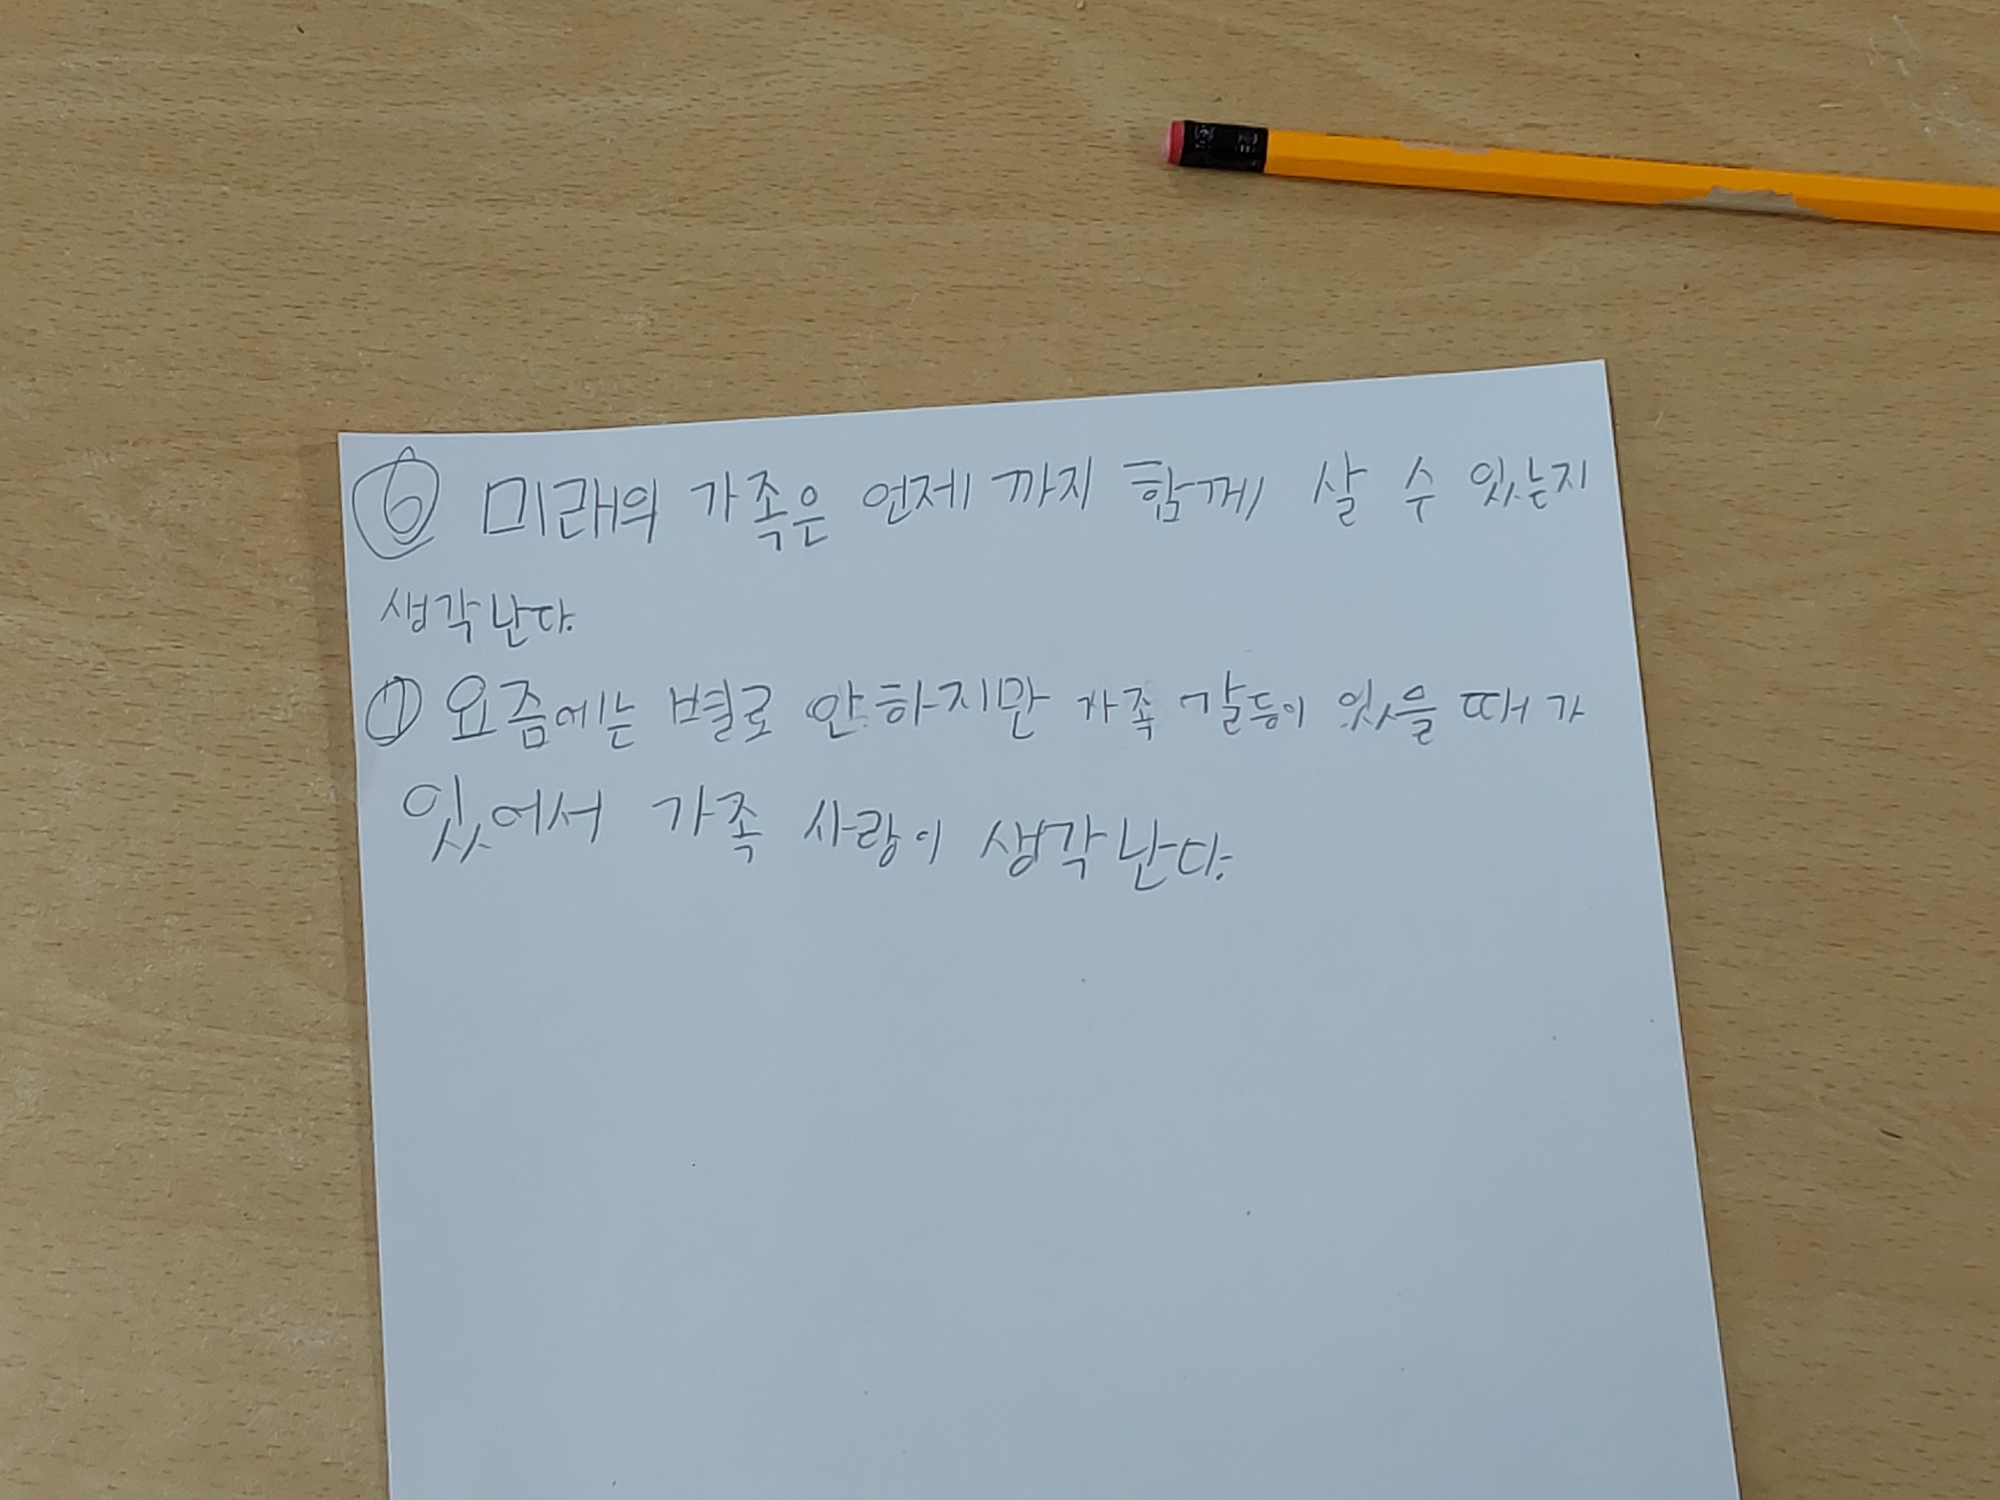 ⑥ 미래의 가족은 언제 까지 함께 살 수 있는지
생각난다.
⑦ 요즘에는 별로 안하지만 가족 갈등이 있을 때가
있어서 가족 사랑이 생각난다.